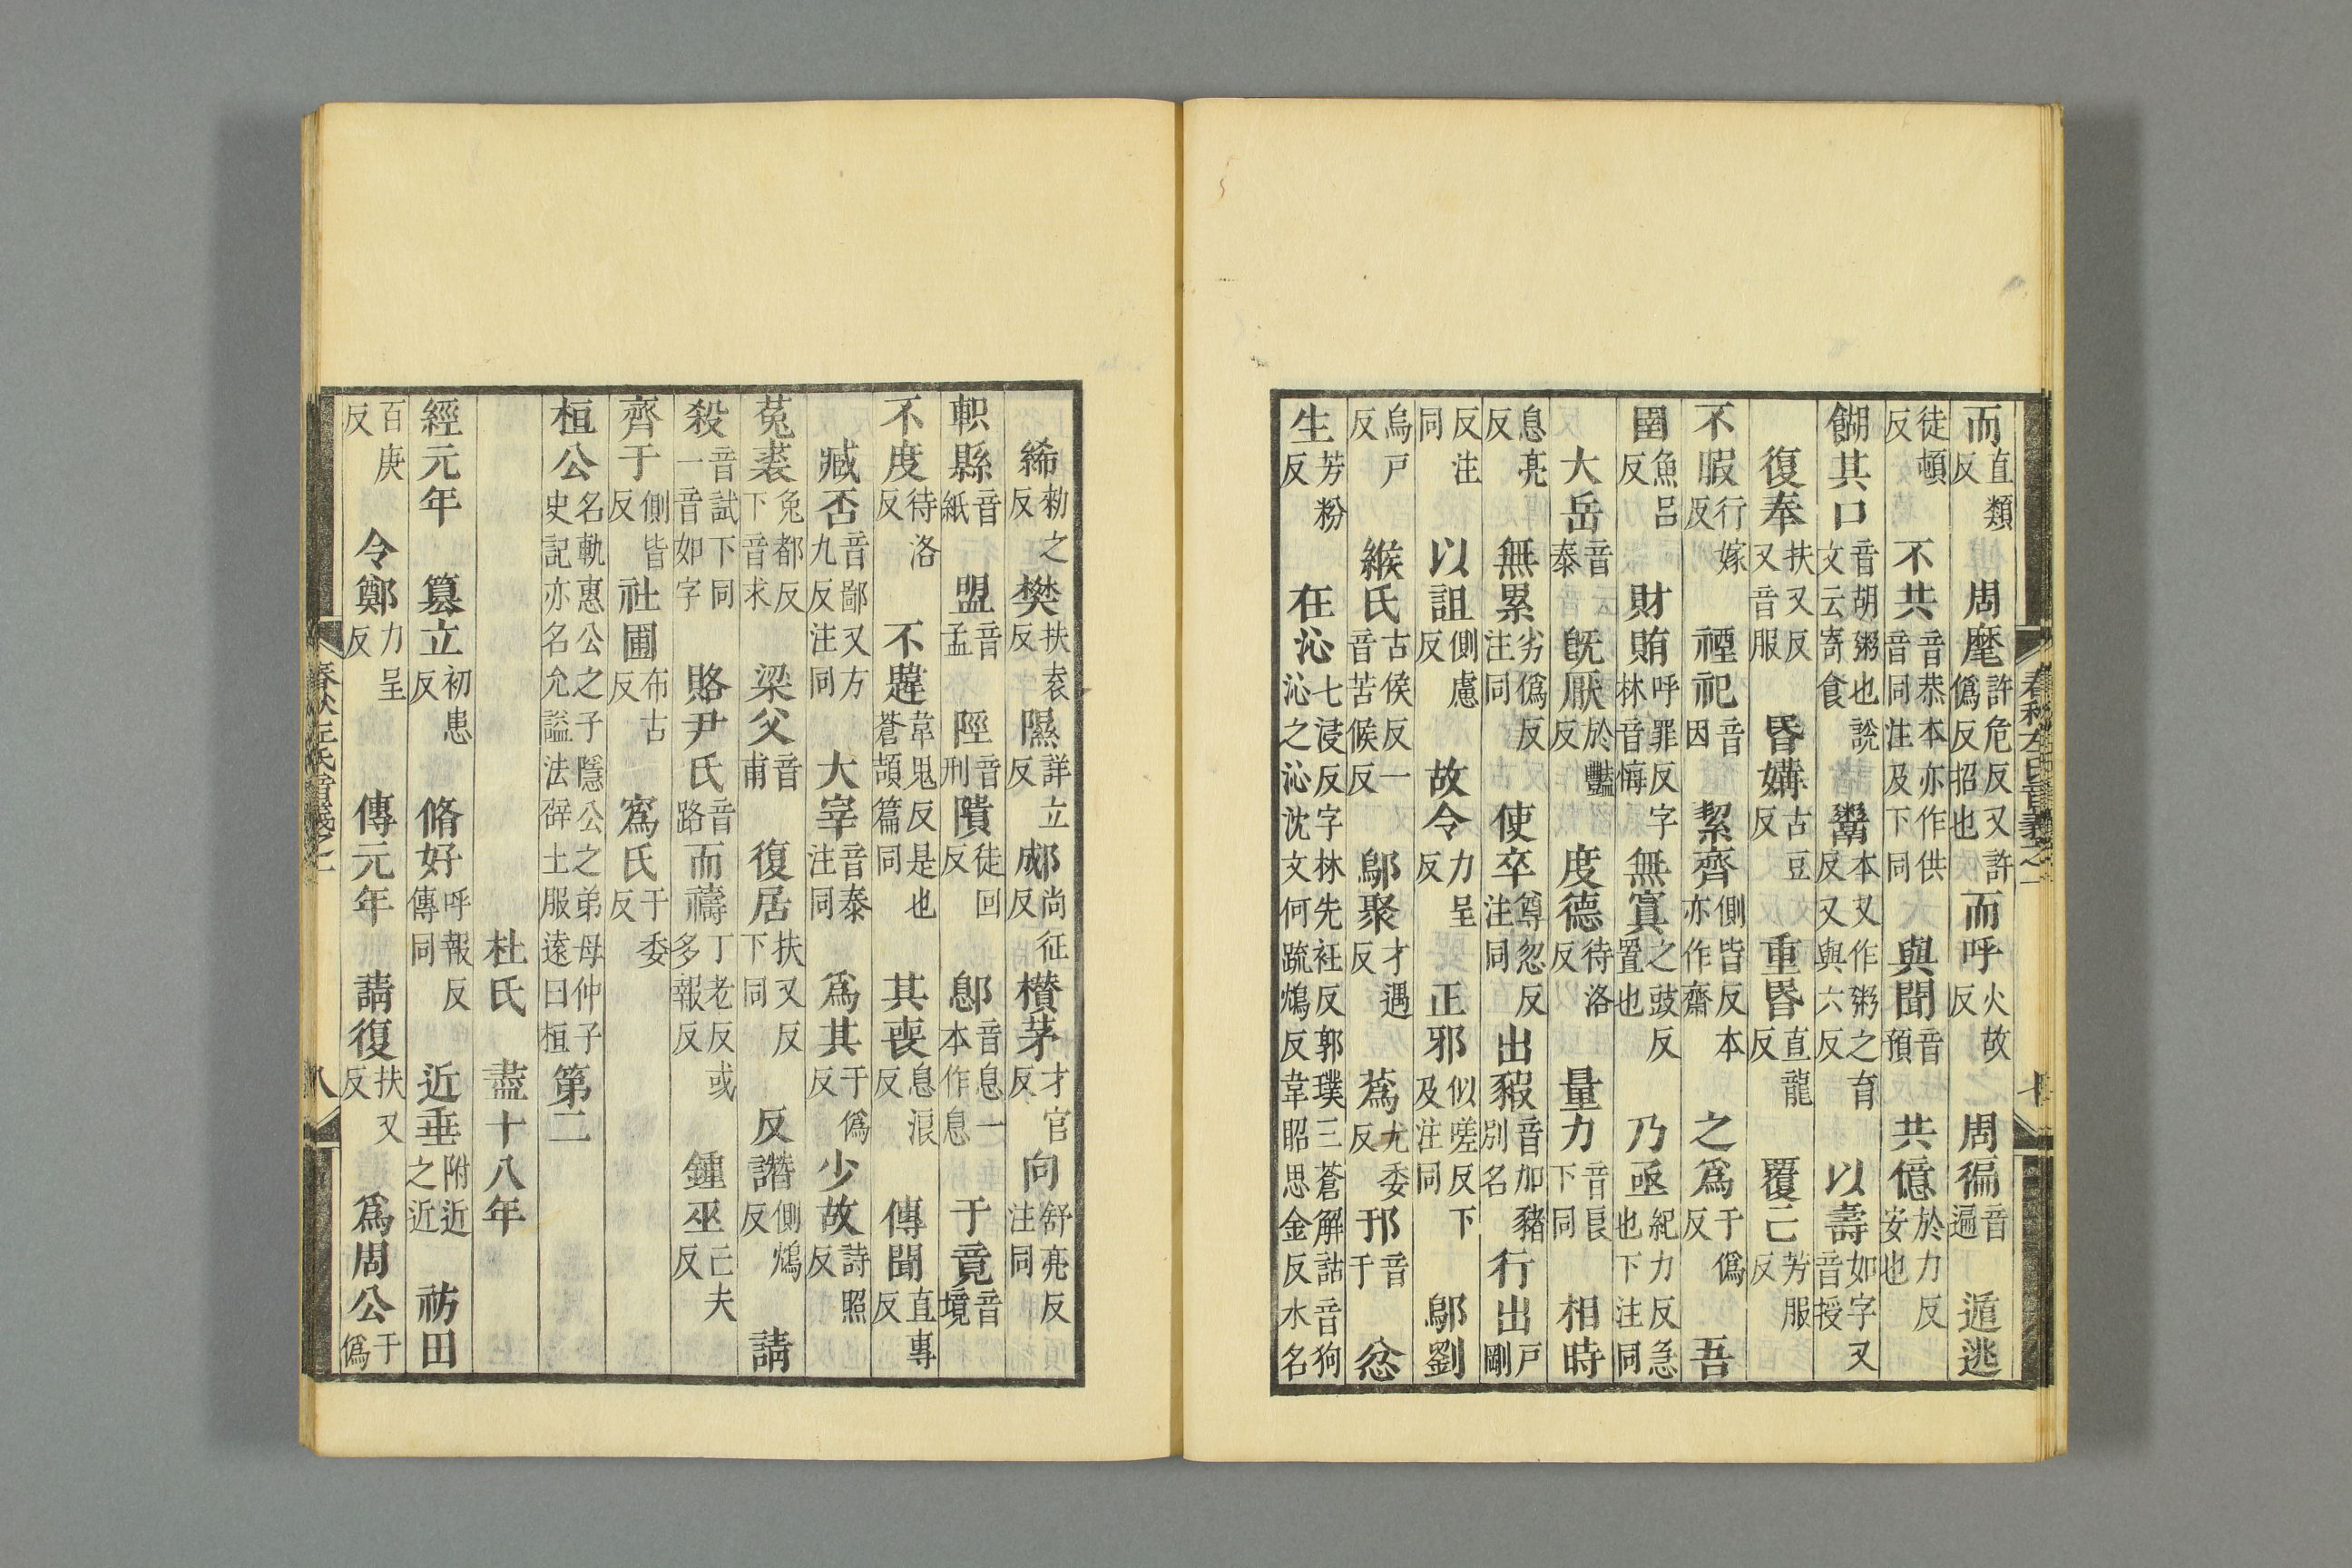 而直類反周麾許危反又許僞反招也而呼火故反周徧音遍遁逃
徒頓反不共音恭本亦作供音同注及下同與聞音預共億於力反安也
餬其口音胡粥也說文云寄食鬻本又作粥之育反又與六反以壽如字又音授
復奉扶又反又音服昏媾古豆反重昏直龍反覆亡芳服反
不暇行嫁反禋祀音因絜齊側皆反本亦作齋之爲于僞反吾
圉魚呂反財賄呼罪反字林音悔無寘之豉反置也乃亟紀力反急也下注同
大岳音泰旣厭於豔反度德待洛反量力音良下同相時
息亮反無累劣僞反注同使卒尊忽反注同出豭音加豬別名行出戶剛
反注同以詛側慮反故令力呈反正邪似嗟反下及注同鄔劉
烏戶反緱氏古侯反一音苦候反鄔聚才遇反蔿尤委反邘音于忿
生芳粉反在沁七浸反字林先衽反郭璞三蒼解詁音狗沁之沁沈文何疏鴆反韋昭思金反水名
絺勑之反樊扶袁反隰詳立反郕尚征反欑茅才官反向舒亮反注同
軹縣音紙盟音孟陘音刑隤徒回反鄎音息一本作息于竟音境
不度待洛反不韙韋鬼反是也蒼頡篇同其喪息浪反傳聞直專反
臧否音鄙又方九反注同大宰音泰注同爲其于僞反少故詩照反
菟裘兔都反下音求梁父音甫復居扶又反下同反譖側鴆反請
殺音試下同一音如字賂尹氏音路而禱丁老反或多報反鍾巫亡夫反
齊于側皆反社圃布古反寪氏于委反
桓公名軌惠公之子隱公之弟母仲子史記亦名允謚法辟土服遠曰桓第二
杜氏盡十八年
經元年簒立初患反脩好呼報反傳同近垂附近之近祊田
百庚反令鄭力呈反傳元年請復扶又反爲周公于僞
春秋左氏音義之一
八